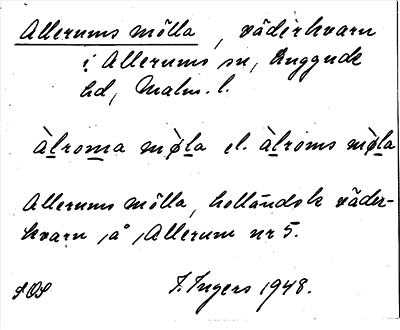 Allerums mölla, väderkvarn
i Allerums sn, Luggude
hd, Malm. l.
Àlroma mø̀la el. àlroms mø̀la
Allerums mölla, holländsk väder-
kvarn, å, Allerum nr 5.
SOS I. Ingers 1948.